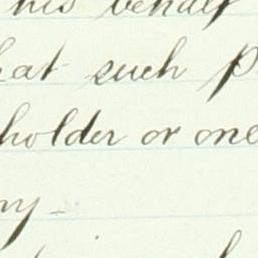 his behalf
hat such p
holder or one
ny -